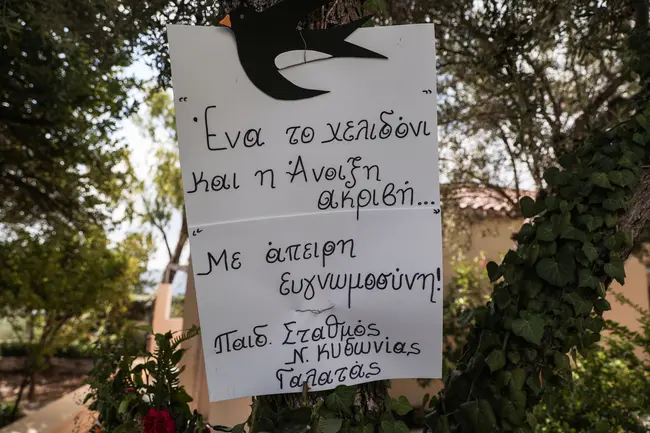 “Ἑνα το χελιδόνι
και η Ἀνοιξη
ακριβή...”
“Με ἀπειρη
ευγνωμοσύνη!
Παιδ. Σταθμός
Ν. Κυδωνίας
Γαλατάς